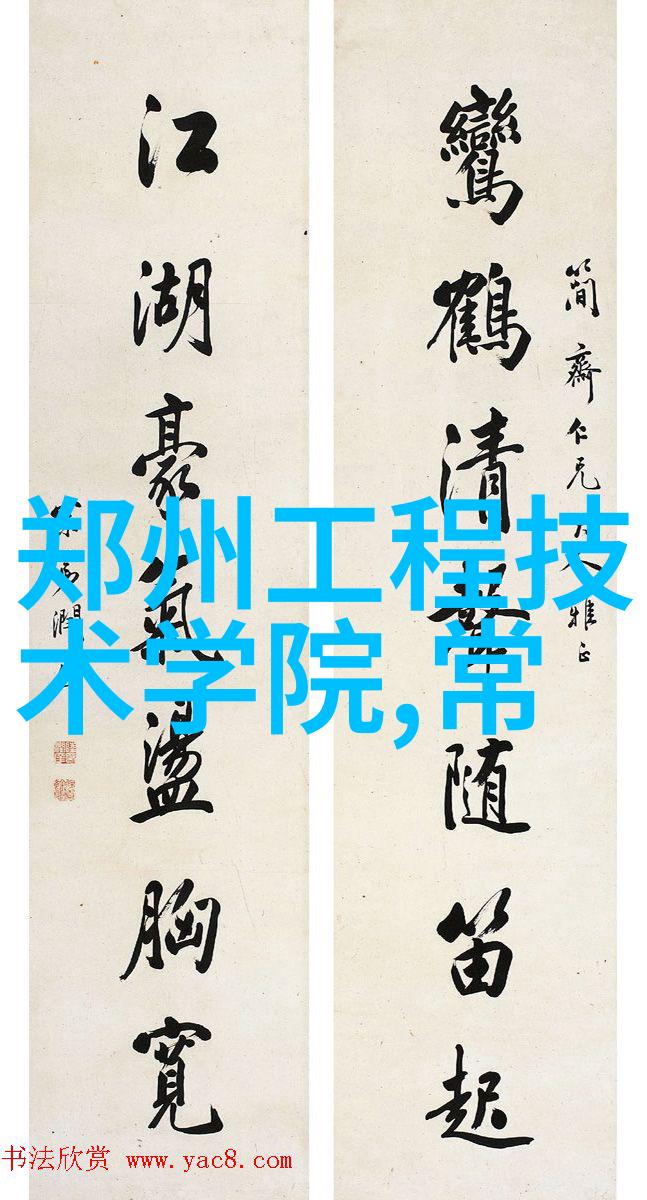 簡齋仁兄大人雅正
鸞鶴清聲随笛起
江湖豪氣盪胸寬
郑州工程技
术学院,常
书法欣赏 www.yac8.com